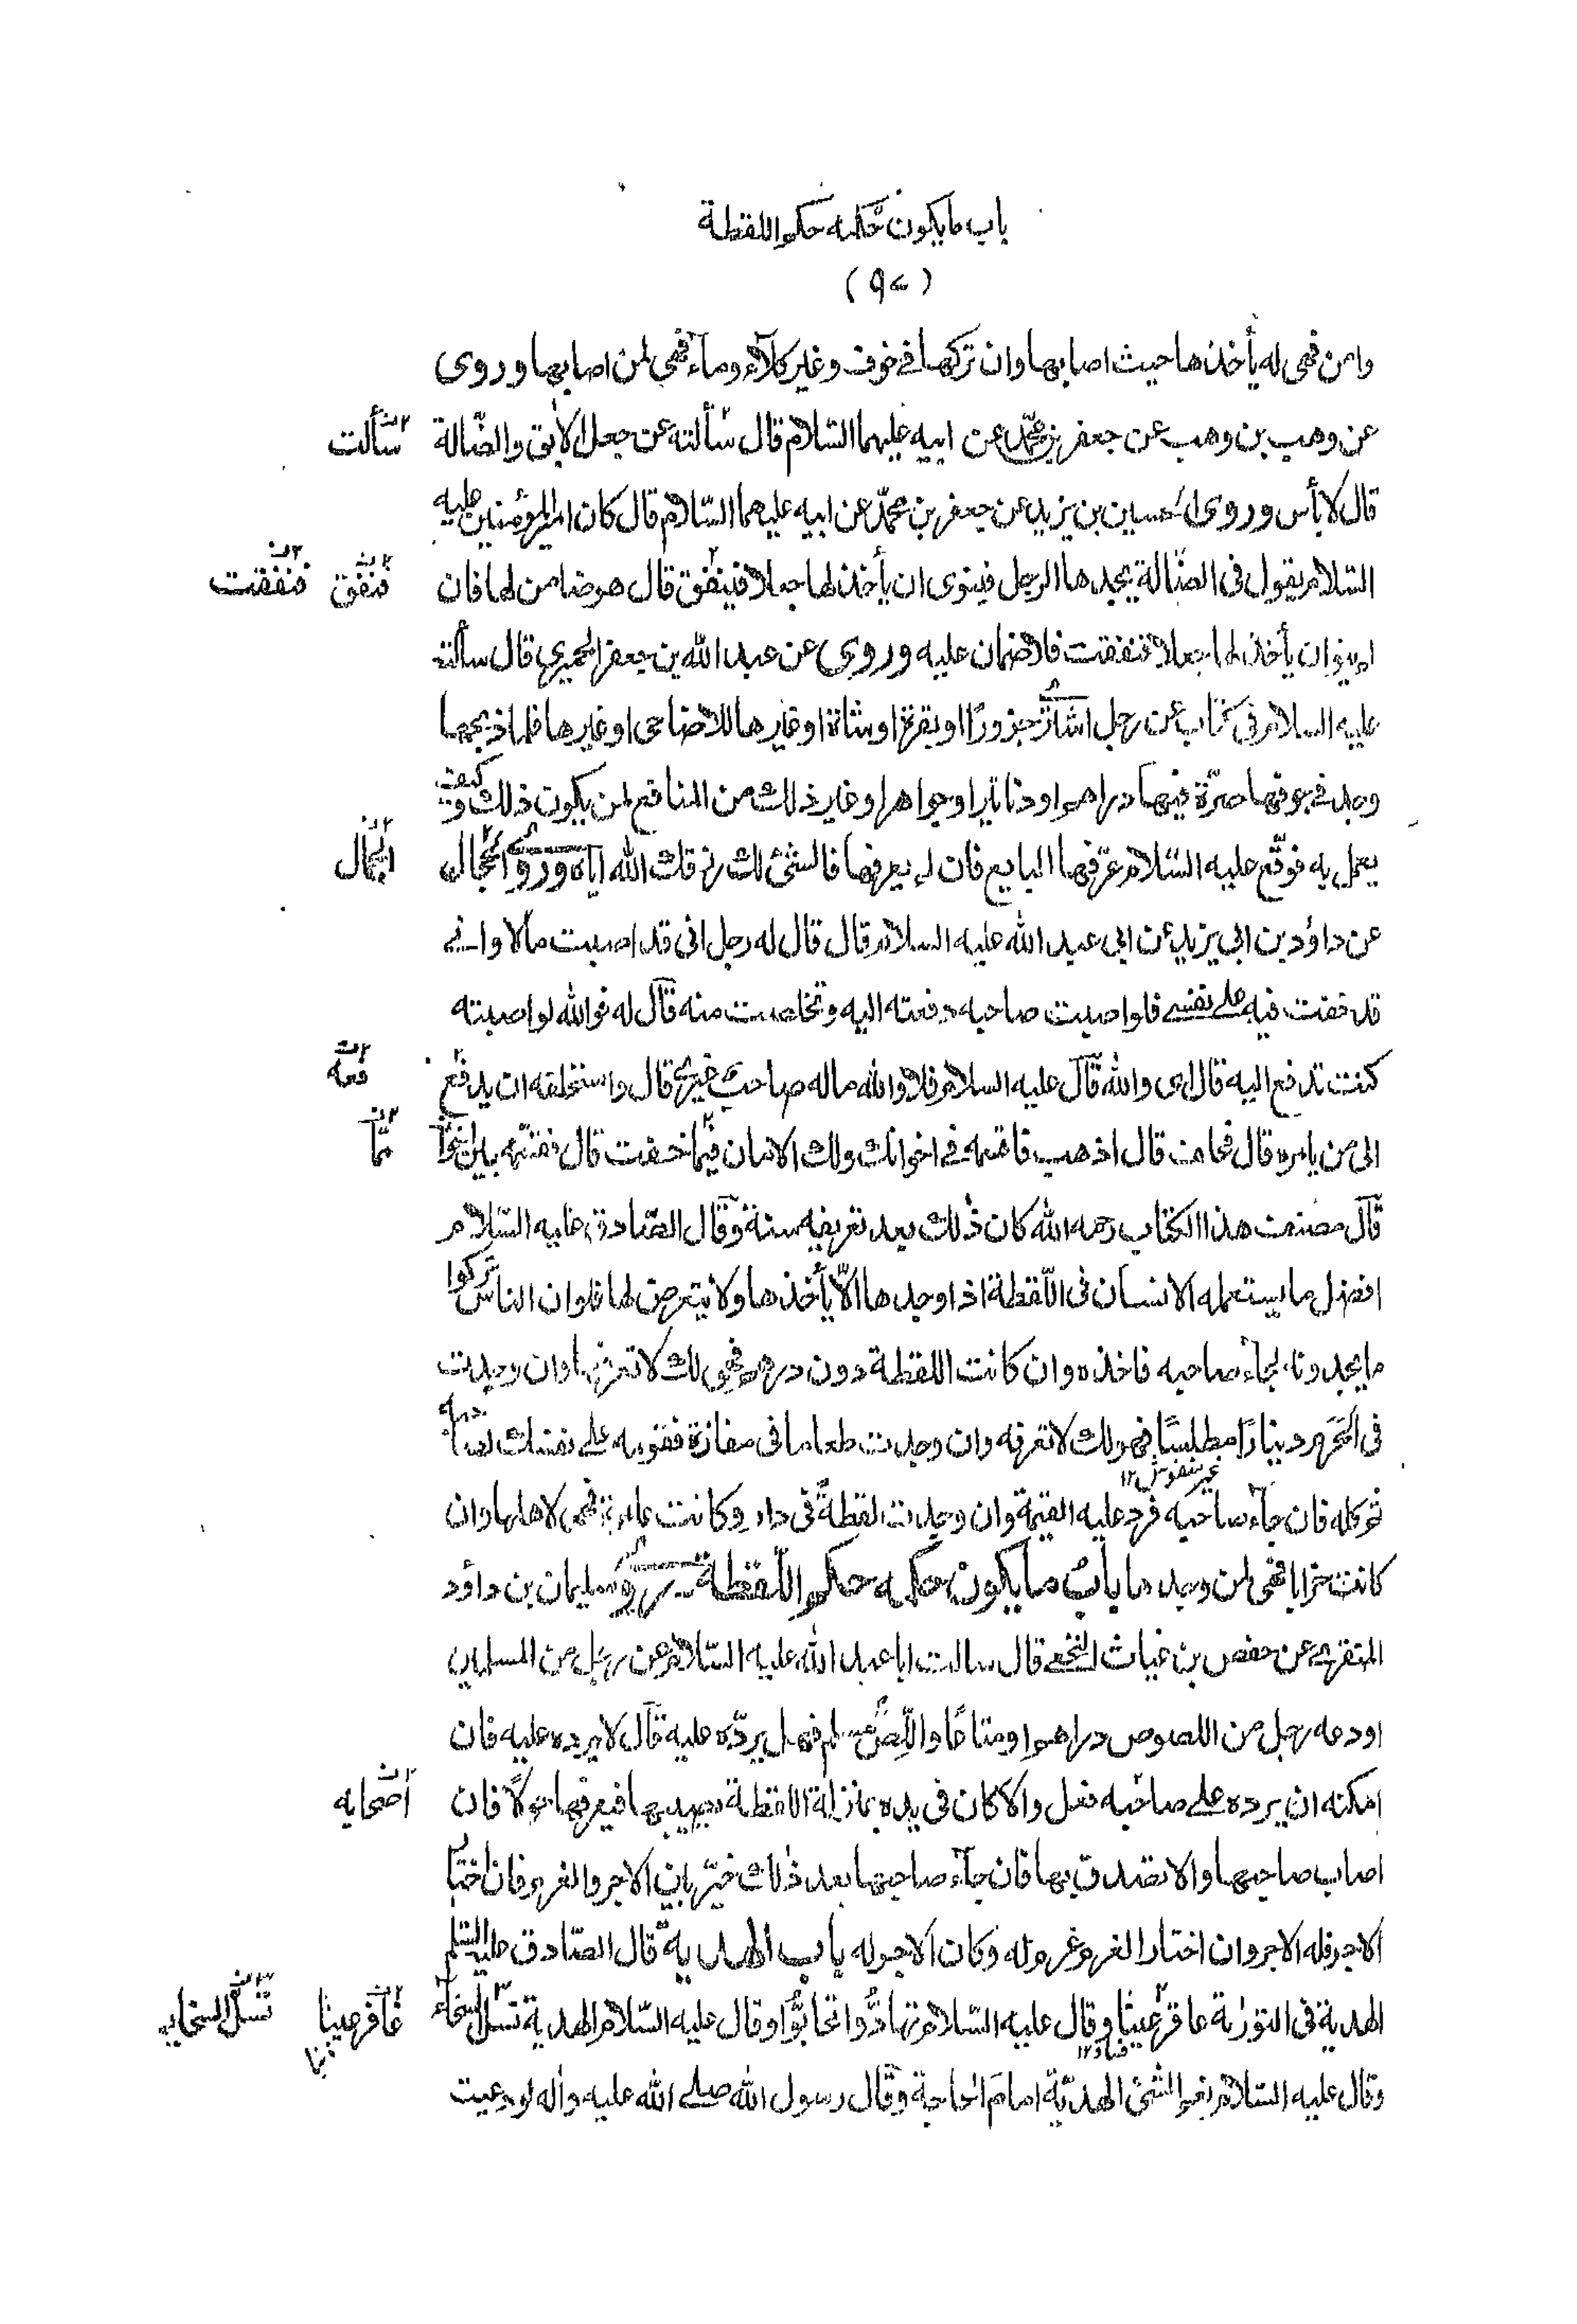 باب مايكون حكمه حكم اللقطة
(٩٧)
وامن فهى له يأخذها حيث اصابها وان تركها فى خوف وغير كلآء وماء فهى لمن اصابها وروى
عن وهب بن وهب عن جعفر بن محمّد عن ابيه عليهما السّلام قال سألته عن جعل الآبق والضّالة
سألت
قال لا بأس وروى الحسين بن يزيد عن جعفر بن محمّد عن ابيه عليهما السّلام قال كان امير المؤمنين عليه
السّلام يقول فى الضّالة يجدها الرجل فينوى ان يأخذ لها جعلا فينفق قال هو ضامن لها فان
فنفق فنفقت
لم ينو ان يأخذ لها جعلا فنفقت فلا ضمان عليه وروى عن عبد الله بن جعفر الحميرى قال سألته
عليه السلام فى كتاب عن رجل اشترى جزورًا او بقرة او شاة او غيرها للاضاحى او غيرها فلما ذبحها
وجد فى جوفها صرّة فيها دراهم او دنانير او جواهر او غير ذلك من المنافع لمن يكون ذلك وكيف
يعمل به فوقّع عليه السّلام عرّفها البايع فان لم يعرفها فالشئ لك رزقك الله اياه وروى الحجال
الجمال
عن داؤد بن ابى يزيد عن ابى عبد الله عليه السلام قال قال له رجل انى قد اصبت مالا وانى
قد خفت فيه على نفسى فلو اصبت صاحبه دفعته اليه وتخلصت منه قال له فوالله لو اصبته
كنت تدفع اليه قال اى والله قال عليه السلام فلا والله ماله صاحب غيرى قال واستحلفه ان يدفع
فعه
الى من يامره قال فحلف قال اذهب فاقسمه فى اخوانك ولك الامان فيما خفت قال فقسّمه بين اخوا
ممّا
قال مصنف هذا الكتاب رحمه الله كان ذلك بعد تعريفه سنة وقال الصّادق عليه السّلام
افضل ما يستعمله الانسان فى اللّقطة اذا وجدها الّا يأخذها ولا يتعرض لها فلو ان الناس تركوا
ما يجدونه لجاء صاحبه فاخذه وان كانت اللقطة دون درهم فهى لك لا تعرفها وان وجدت
فى الحرم دينارًا مطلسًا فهو لك لا تعرفه وان وجدت طعاما فى مفازة فقومه على نفسك لصاحبه
غير منقوش ١٢
ثم كله فان جاء صاحبه فرد عليه القيمة وان وجدت لقطةً فى دار وكانت عامرة فهى لاهلها وان
كانت خرابا فهى لمن وجدها باب ما يكون حكمه حكم اللّقطة روى سليمان بن داؤد
المنقرى عن حفص بن غياث النخعى قال سالت ابا عبد الله عليه السّلام عن رجل من المسلمين
اودعه رجل من اللصوص دراهم او متاعًا واللّصّ مسلم فهل يردّه عليه قال لا يرده عليه فان
امكنه ان يرده على صاحبه فعل والا كان فى يده بمنزلة اللقطة يصيبها فيعرفها حولًا فان
أصحابه
اصاب صاحبها والا تصدق بها فان جآء صاحبها بعد ذلك خيّر بين الاجر والغرم فان اختار
الاجر فله الاجر وان اختار الغرم غرم له وكان الاجر له باب الهدية قال الصّادق عليه السّلم
الهدية فى التورٰية عاقر عينا وقال عليه السّلام تهادّوا تحابّوا وقال عليه السّلام الهدية تسل السخآء
عافر عينا تسلّ السخايم
وقال عليه السّلام نعم الشئ الهديّة امام الحاجة وقال رسول الله صلى الله عليه واله لو دعيت